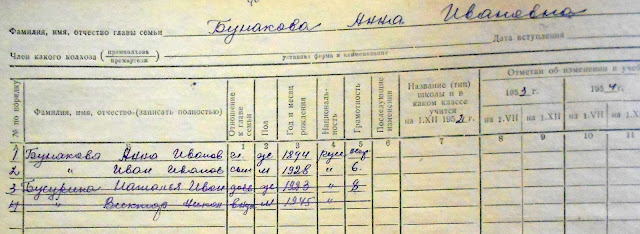 Фамилия, имя, отчество главы семьи Бунакова Анна Ивановна
Член какого колхоза (промколхоза промартели) указать форму и наименование Дата вступления
№ по порядку Фамилия, имя, отчество (записать полностью) Отношение к главе семьи Пол Год и месяц рождения Националь-ность Грамотность Последующие изменения Название (тип) школы и в каком классе учится на 1.XII 1952 г. Отметки об изменении в учеб
1953 г. 1954 г.
на 1.VII на 1.XII на 1.VII на 1.XII
1 2 3 4 5 6 7 8 9 10 11
1 Бунакова Анна Иванов гл. ж 1894 русс
2 " Иван Иванов сын м 1928 " 6
3 Бусурина Наталья Иван дочь ж 1923 " 8
4 " Виктор внук м 1945 "